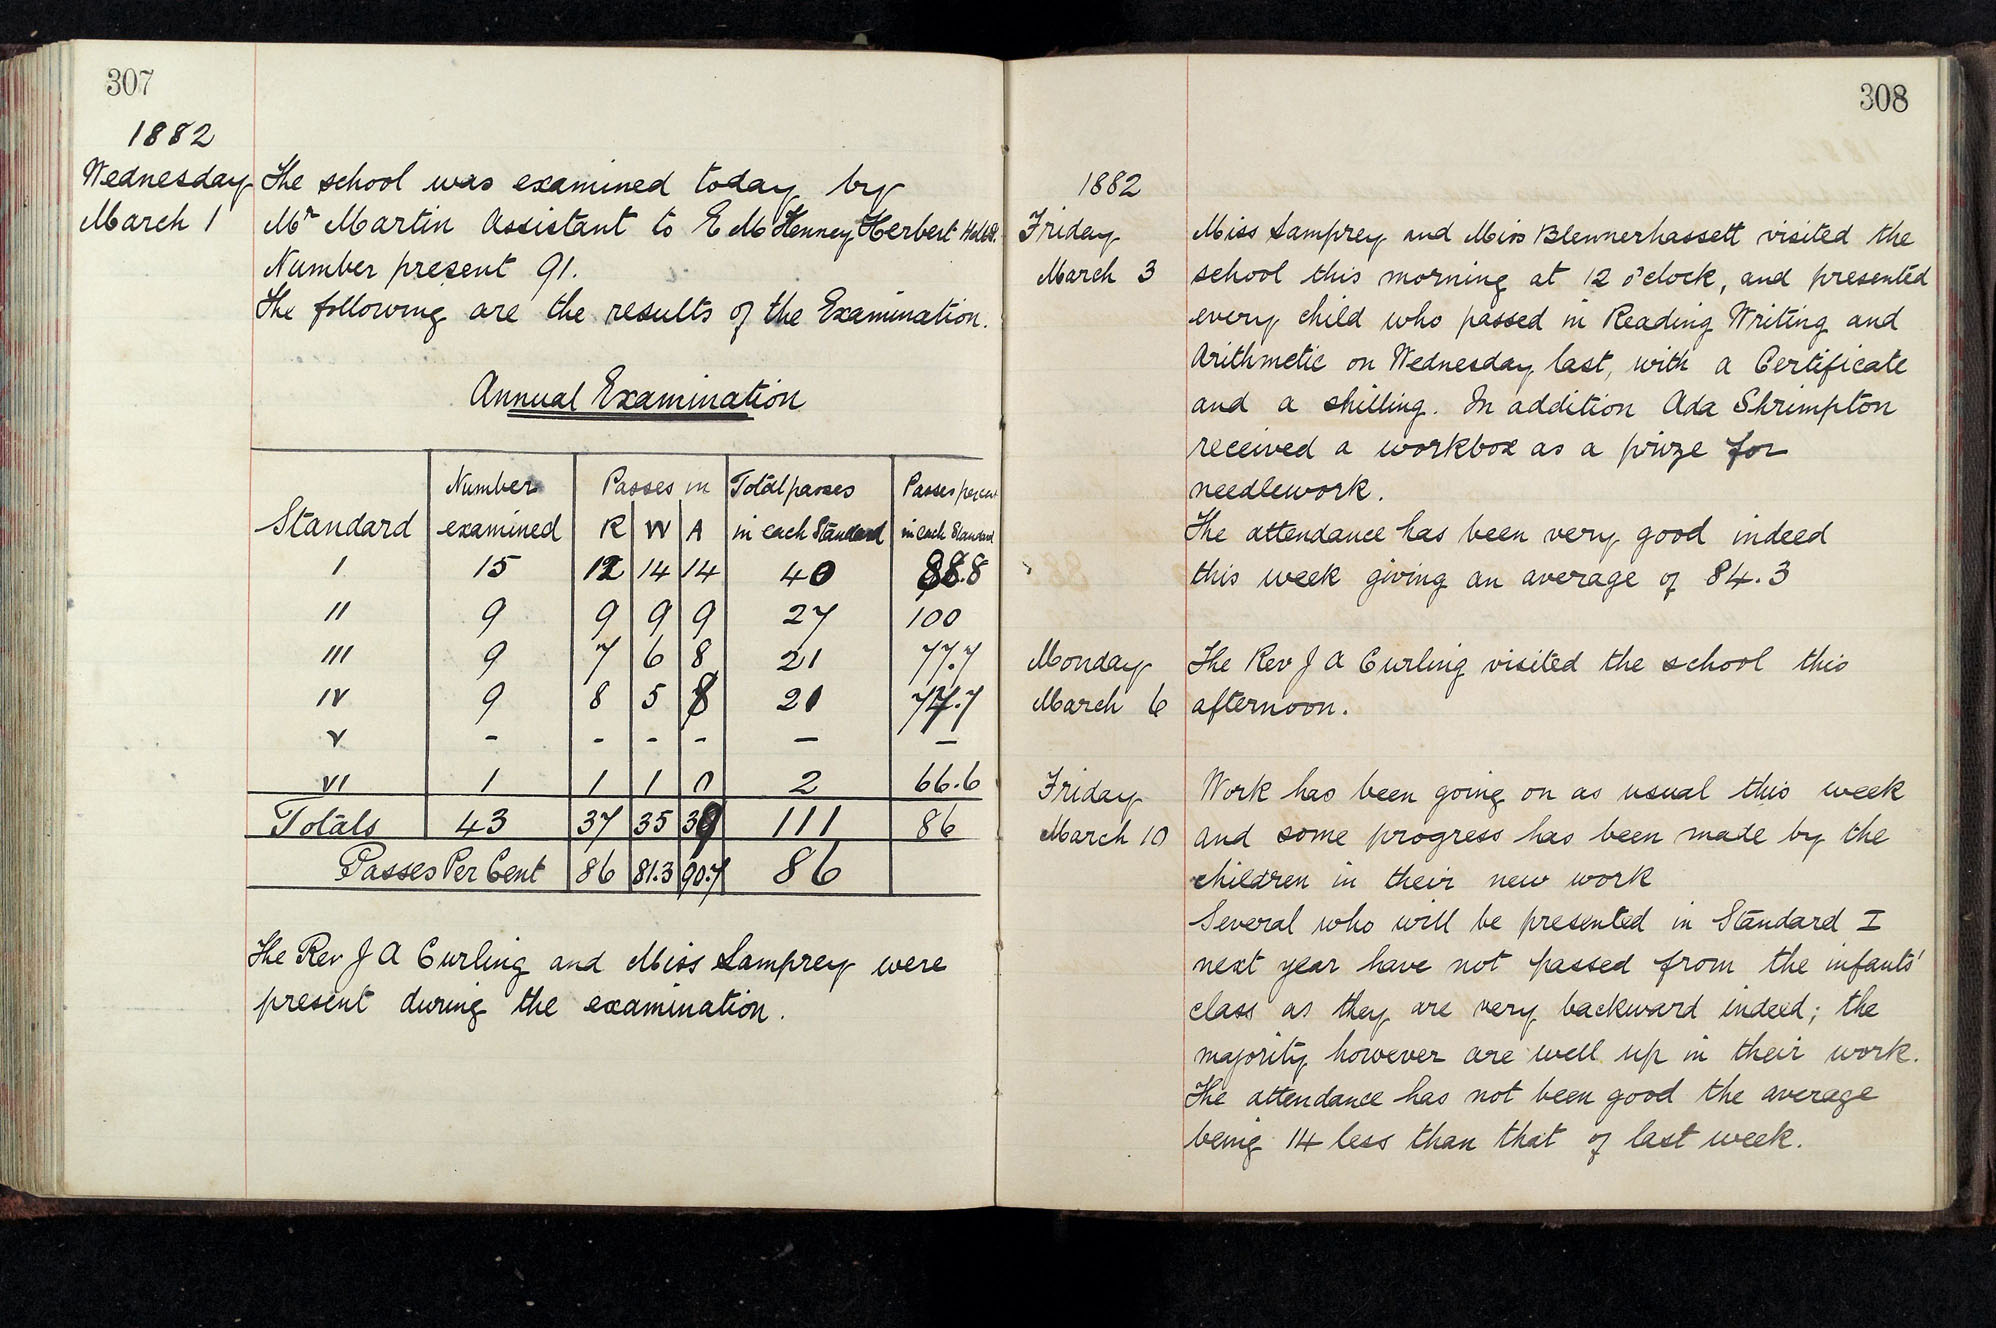 307
1882
Wednesday
March 1
The school was examined today by
Mr Martin Assistant to E McKenney Herbert H.M.I.
Number present 91.
The following are the results of the Examination.
Annual Examination
Standard | Number examined | Passes in R | W | A | Total passes in each Standard | Passes percent in each Standard
I | 15 | 12 | 14 | 14 | 40 | 88.8
II | 9 | 9 | 9 | 9 | 27 | 100
III | 9 | 7 | 6 | 8 | 21 | 77.7
IV | 9 | 8 | 5 | 8 | 21 | 77.7
V | - | - | - | - | - | -
VI | 1 | 1 | 1 | 0 | 2 | 66.6
Totals | 43 | 37 | 35 | 39 | 111 | 86
Passes Per Cent | 86 | 81.3 | 90.7 | 86
The Rev J A Curling and Miss Lamprey were
present during the examination.
308
1882
Friday
March 3
Miss Lamprey and Miss Blennerhassett visited the
school this morning at 12 o'clock, and presented
every child who passed in Reading Writing and
Arithmetic on Wednesday last, with a Certificate
and a shilling. In addition Ada Shrimpton
received a workbox as a prize for
needlework.
The attendance has been very good indeed
this week giving an average of 84.3
Monday
March 6
The Rev J A Curling visited the school this
afternoon.
Friday
March 10
Work has been going on as usual this week
and some progress has been made by the
children in their new work
Several who will be presented in Standard I
next year have not passed from the infants'
class as they are very backward indeed; the
majority however are well up in their work.
The attendance has not been good the average
being 14 less than that of last week.